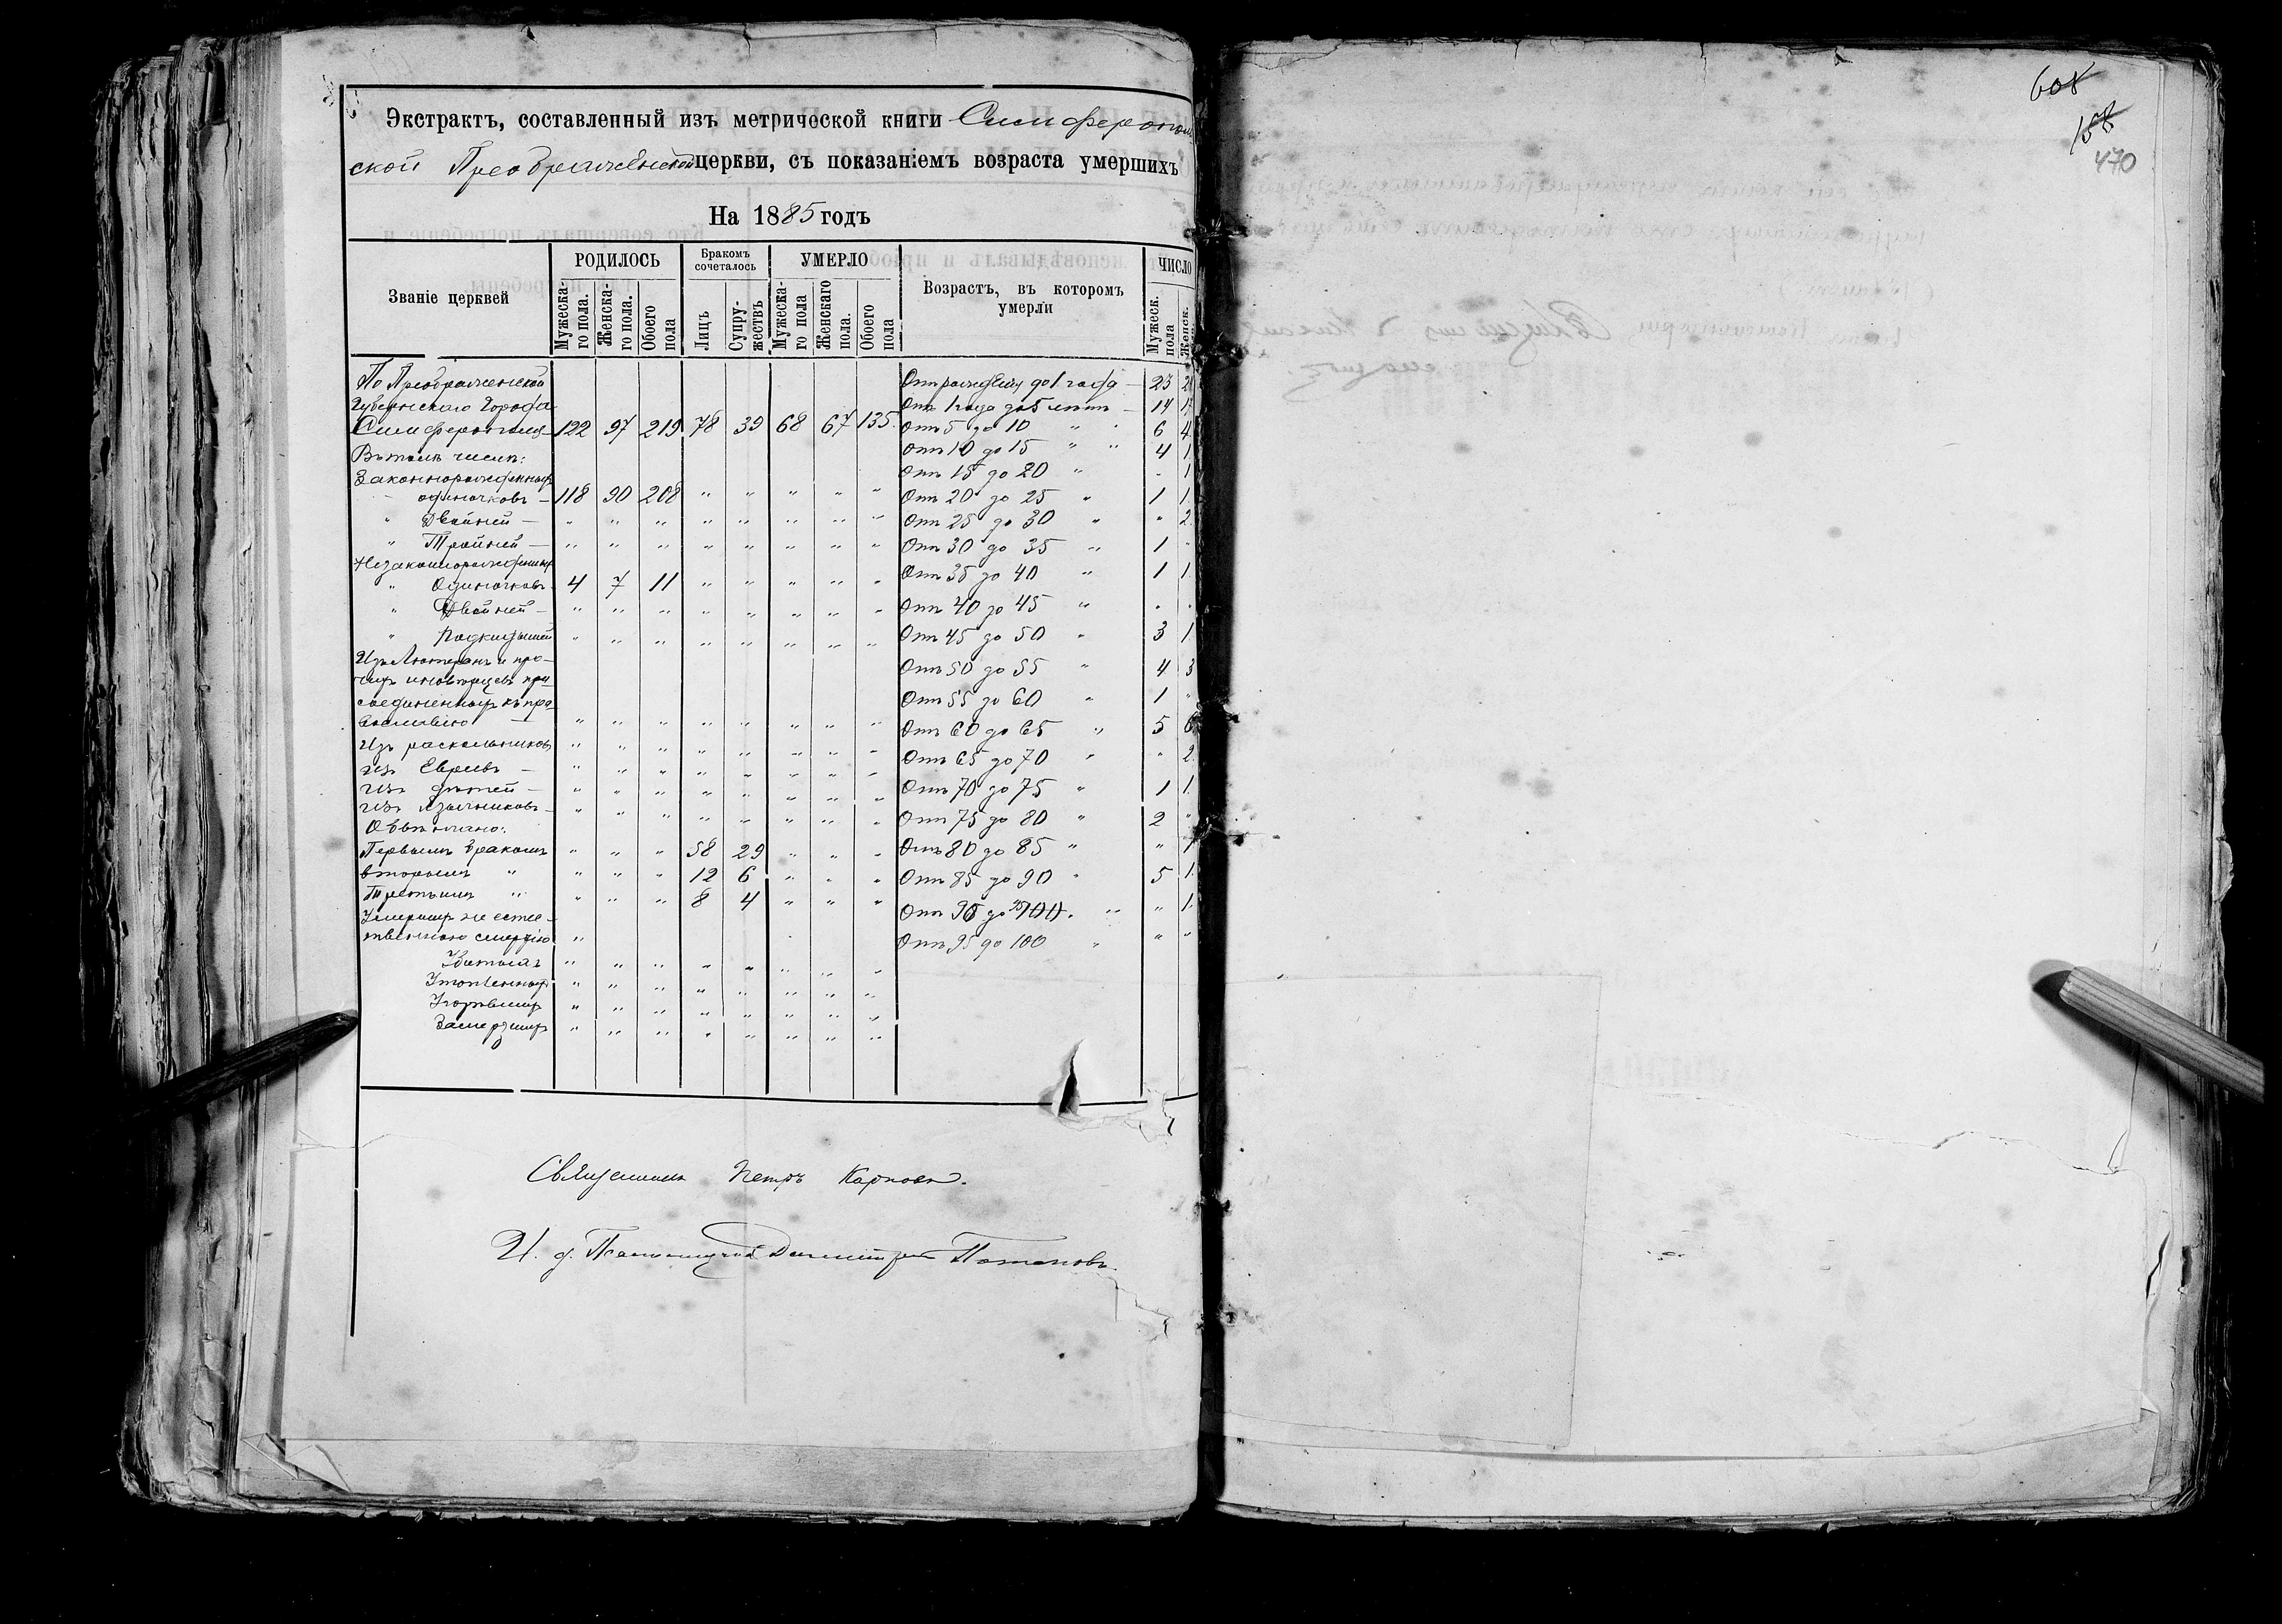 Экстрактъ, составленный изъ метрической книги Симферополь
ской Преображенской церкви, съ показанiемъ возраста умершихъ
На 1885 годъ
Званіе церквей
РОДИЛОСЬ
Мужеска-го пола.
Женска-го пола.
Обоего пола
Бракомъ сочеталось
Лицъ
Супру-жествъ
УМЕРЛО
Мужеска-го пола
Женскаго пола.
Обоего пола
Возрастъ, въ которомъ умерли
ЧИСЛО
Мужеск. пола
Женск.
По Преображенской
Губернскаго Города
Симферополя 122 97 219 78 39 68 67 135.
Въ томъ числѣ:
Законнорожденныхъ
одиночковъ — 118 90 208 " " " " "
" Двойней — " " " " " " " "
" Тройней — " " " " " " " "
Незаконнорожденныхъ
" Одиночковъ 4 7 11 " " " " "
" Двойней — " " " " " " " "
" Подкидышей " " " " " " " "
Изъ Лютеранъ и про-
чихъ иновѣрцевъ при
соединенныхъ къ пра
вославію — " " " " " " " "
Изъ раскольниковъ " " " " " " " "
изъ Евреевъ — " " " " " " " "
изъ дѣтей — " " " " " " " "
изъ язычниковъ — " " " " " " " "
Обвѣнчано:
Первымъ бракомъ " " " 58 29 " " "
вторымъ " " " " 12 6 " " "
Третьимъ " " " " 8 4 " " "
Умершихъ не есте-
ственною смертію "
Убитыхъ " " " " " " " "
Утопленныхъ " " " " " " " "
Угорѣвшихъ " " " " " " " "
Замерзшихъ " " " " " " " "
Отъ рожденія до 1 года — 23
Отъ 1 года до 5 лѣтъ — 14 17
Отъ 5 до 10 " 6 4
Отъ 10 до 15 " " 4 1
Отъ 15 до 20 " " 1
Отъ 20 до 25 " 1 1.
Отъ 25 до 30 " " 2.
Отъ 30 до 35 " 1 "
Отъ 35 до 40 " 1 1.
Отъ 40 до 45 " " "
Отъ 45 до 50 " 3 1.
Отъ 50 до 55 " 4 3
Отъ 55 до 60 " 1 "
Отъ 60 до 65 " 5 6
Отъ 65 до 70 " " 2.
Отъ 70 до 75 " 1 1.
Отъ 75 до 80 " 2 "
Отъ 80 до 85 " " 1
Отъ 85 до 90 " 5 1.
Отъ 90 до 95 " " 1.
Отъ 95 до 100 " " "
Священникъ Петръ Карповъ.
И. д. Псаломщика Димитрій Потаповъ.
608
158
470